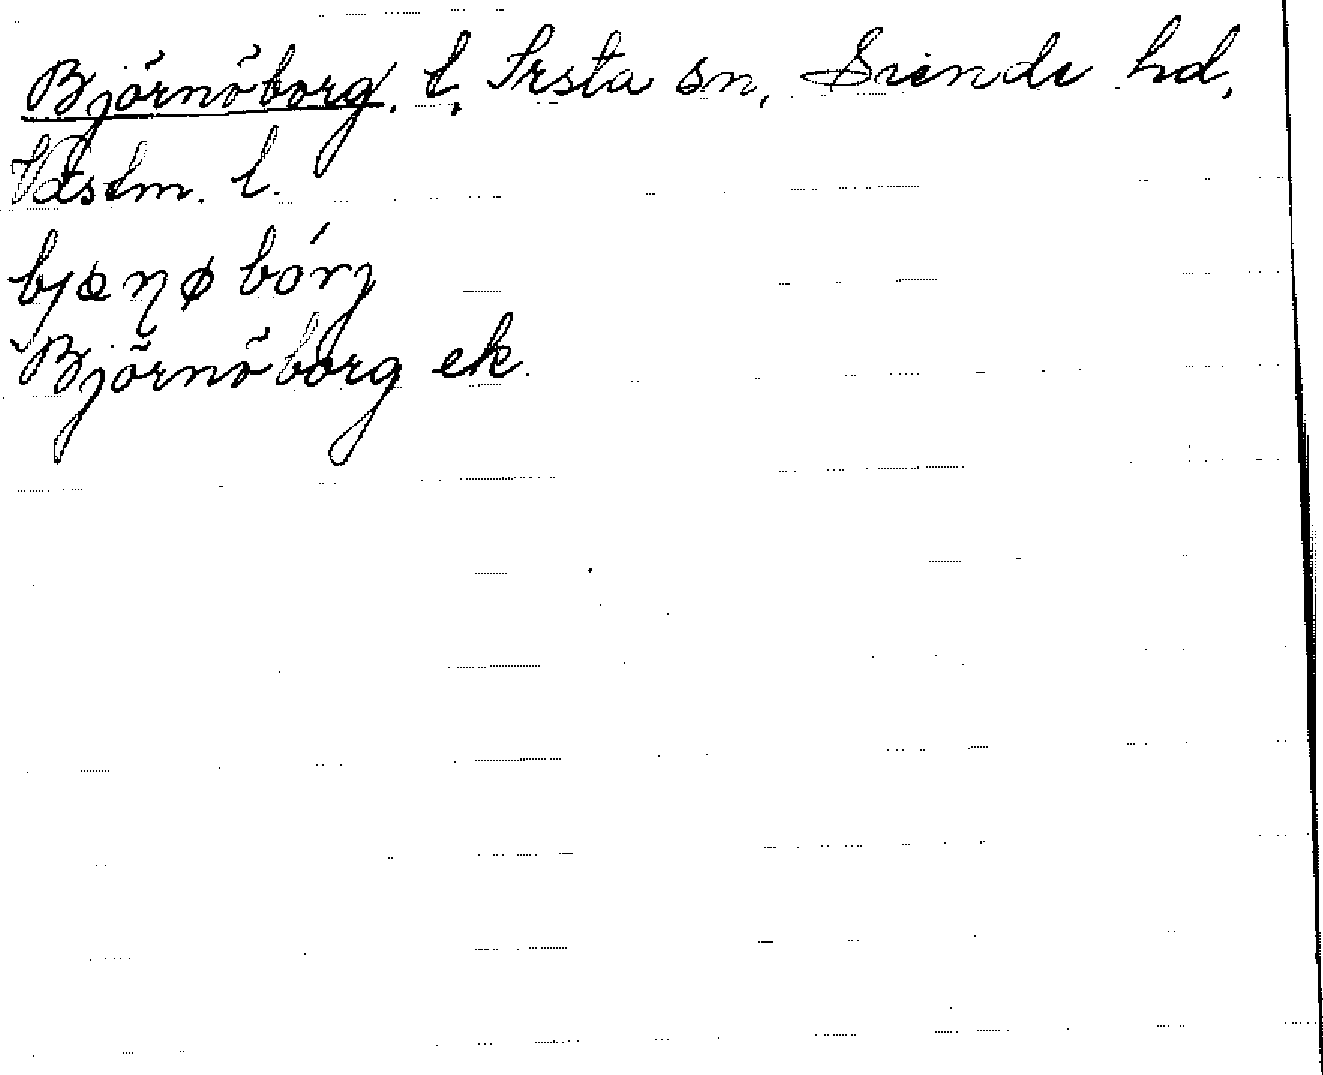 Björnöborg, t, Irsta sn, Siende hd,
Västm. l.
bjæṇøbórj
Björnöborg ek.